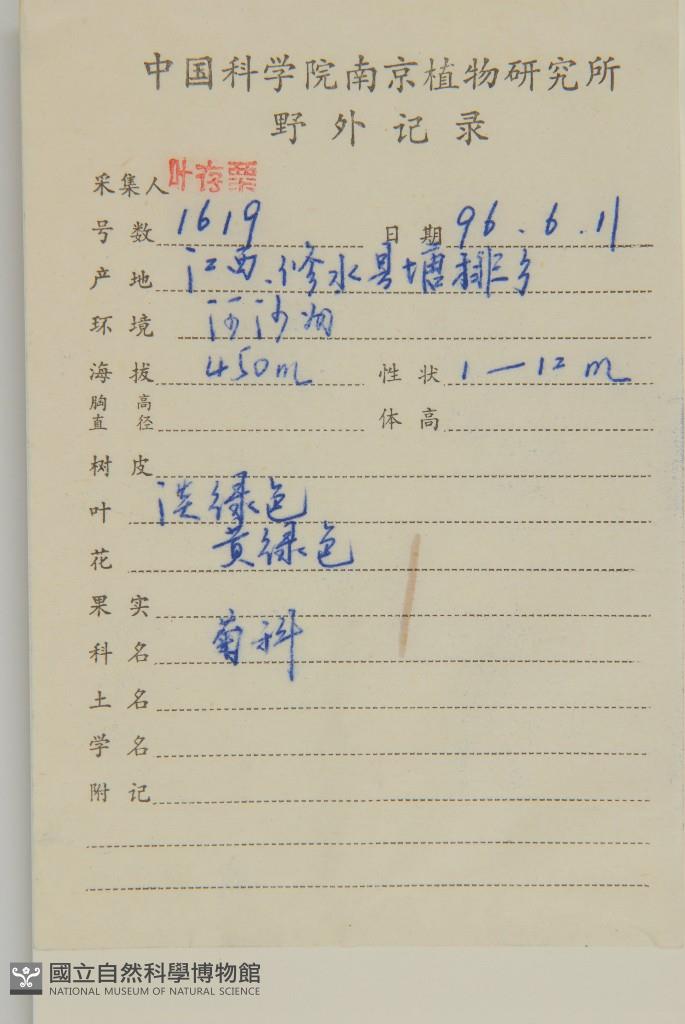 中国科学院南京植物研究所
野外记录
采集人 叶存粟
号数 1619 日期 96.6.11
产地 江西.修水县塘排乡
环境 沙
海拔 450m 性状 1—12m
胸高直径 体高
树皮
叶 淡绿色
花 黄绿色
果实
科名 菊科
土名
学名
附记
國立自然科學博物館
NATIONAL MUSEUM OF NATURAL SCIENCE